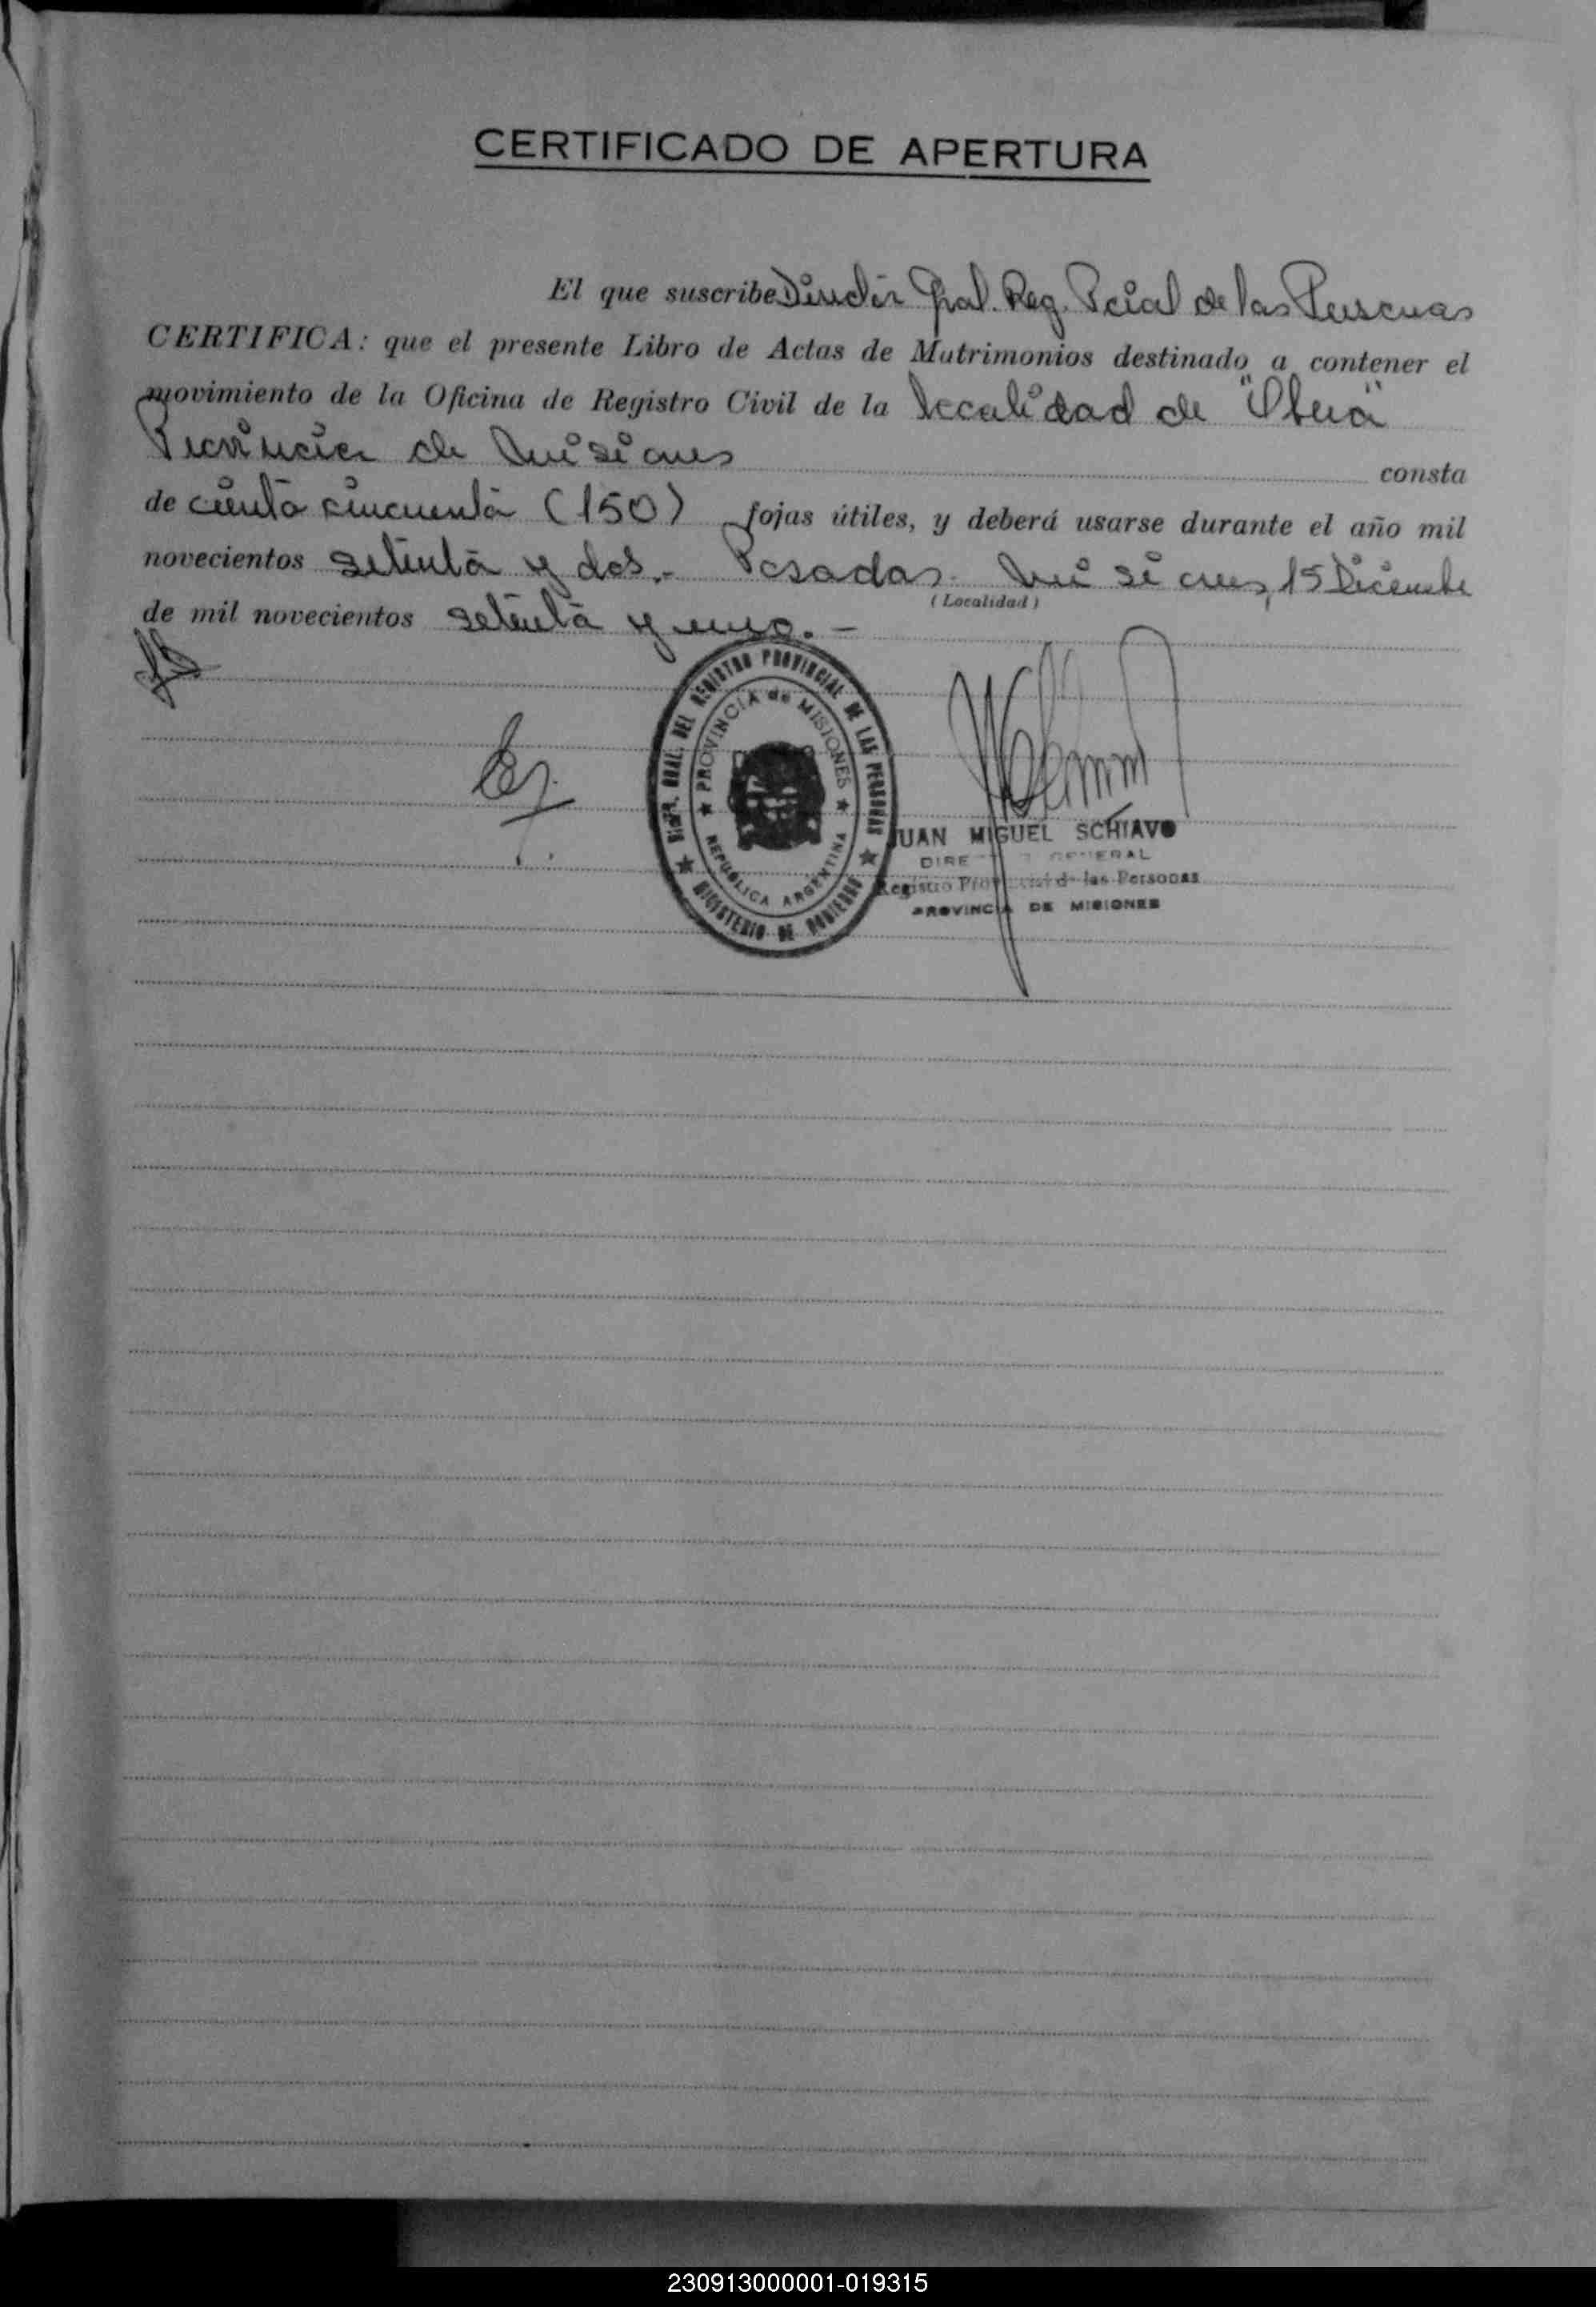 CERTIFICADO DE APERTURA
El que suscribe Director Gral. Reg. Pcial de las Personas
CERTIFICA: que el presente Libro de Actas de Matrimonios destinado a contener el
movimiento de la Oficina de Registro Civil de la localidad de "Oberá"
Provincia de Misiones consta
de ciento cincuenta (150) fojas útiles, y deberá usarse durante el año mil
novecientos setenta y dos.- Posadas. Misiones, 15 Diciembre
(Localidad)
de mil novecientos setenta y uno. -
DIR. GRAL. DEL REGISTRO PROVINCIAL DE LAS PERSONAS
PROVINCIA de MISIONES
REPUBLICA ARGENTINA
MINISTERIO DE GOBIERNO
JUAN MIGUEL SCHIAVO
DIRE GENERAL
Registro Provincial de las Personas
PROVINCIA DE MISIONES
230913000001-019315